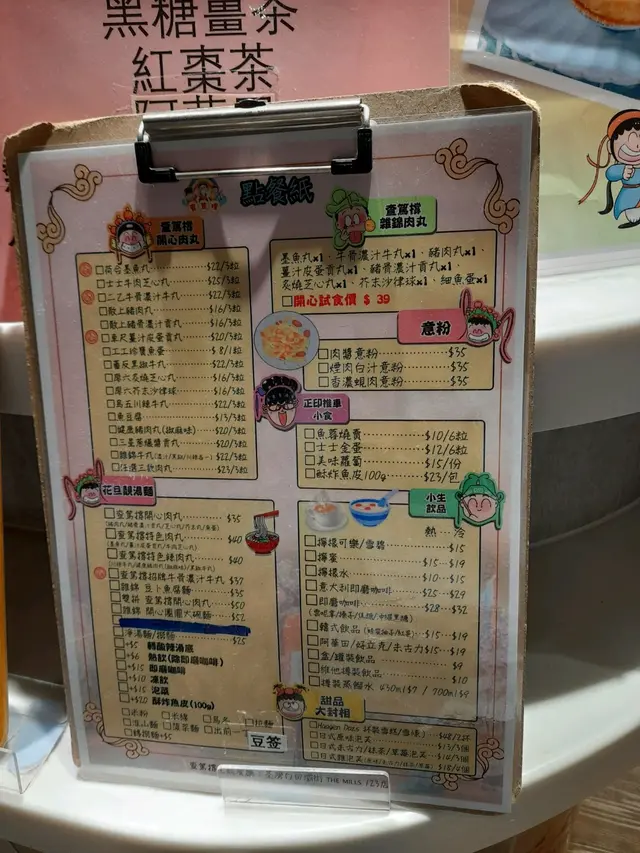 黑糖薑茶
紅棗茶
點餐紙
壹篤撐
開心肉丸
荷台墨魚丸 $22/3粒
士士牛肉芝心丸 $25/3粒
二乙牛骨濃汁牛丸 $22/3粒
上豬肉丸 $16/3粒
上豬骨濃汁貢丸 $16/3粒
車尺薑汁皮蛋貢丸 $20/3粒
工工珍寶魚蛋 $8/1粒
蕃反黑椒牛丸 $22/3粒
六炙燒芝心丸 $16/3粒
六芥末沙律球 $16/3粒
烏五川辣牛丸 $22/3粒
魚豆腐 $13/3粒
健豬肉丸(椒麻味) $20/3粒
三星蔥爆醬貢丸 $20/3粒
雜錦牛丸 $22/3粒
任選三款肉丸 $23/3粒
壹篤撐
雜錦肉丸
墨魚丸x1、牛骨濃汁牛丸x1、豬肉丸x1、
薑汁皮蛋貢丸x1、豬骨濃汁貢丸x1、
炙燒芝心丸x1、芥末沙律球x1、細魚蛋x1
開心試食價 $ 39
意粉
肉醬意粉 $35
煙肉白汁意粉 $35
香濃蜆肉意粉 $35
正印推車
小食
魚蓉燒賣 $10/6粒
士士金蛋 $12/6粒
美味蘿蔔 $15/份
酥炸魚皮100g $23/包
花旦靚湯麵
壹篤撐開心肉丸 $35
壹篤撐特色肉丸 $40
壹篤撐特色辣肉丸 $40
壹篤撐招牌牛骨濃汁牛丸 $37
雜錦 豆卜魚腐麵 $35
雙拼 壹篤撐開心肉丸 $50
雜錦 開心團圓大碗麵 $52
淨湯麵/撈麵 $25
+$5 轉酸辣湯底
+$6 熱飲(除即磨咖啡)
+$15 即磨咖啡
+$10 凍飲
+$15 泡菜
+$20 酥炸魚皮(100g)
米粉 烏冬 拉麵
菠菜麵 出前
轉撈麵+$5
豆签
小生
飲品
熱 冷
檸檬可樂/雪碧 $15
檸蜜 $15 $19
檸檬水 $10 $15
意大利即磨咖啡 $25 $29
即磨咖啡 $28 $32
韓式飲品 $15 $19
阿華田/好立克/朱古力 $15 $19
盒/罐裝飲品 $9
維他樽裝飲品 $10
樽裝蒸餾水 430ml $7 / 700ml $9
甜品
大封相
Häagen Dazs 杯裝雪糕 $48/2杯
日式原味泡芙 $13/3個
日式朱古力/抹茶/草莓泡芙 $14/3個
日式雜泡芙 $18/4個
THE MILLS